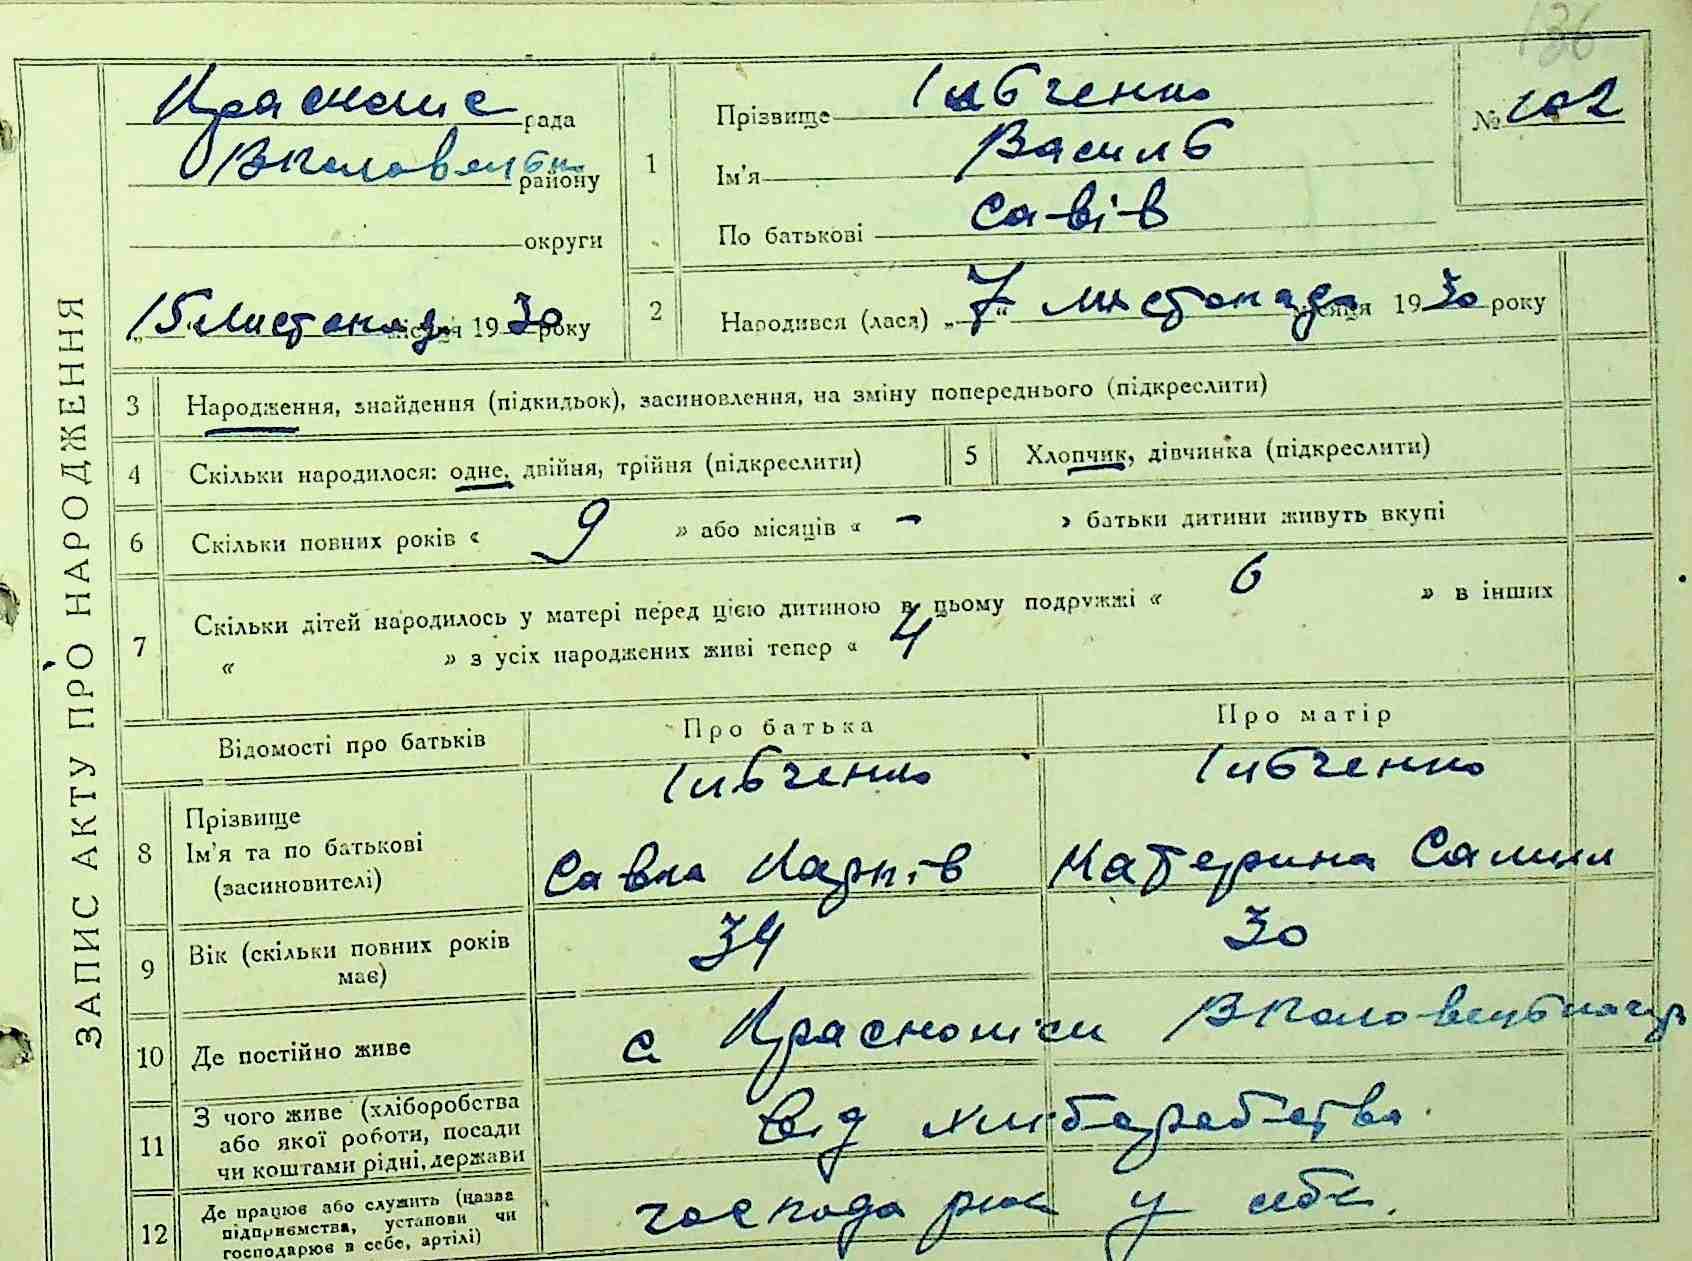 136
ЗАПИС АКТУ ПРО НАРОДЖЕННЯ
рада
району
округи
„15" Листопад місяця 1930 року
1
Прізвище Ільченко
Ім'я Василь
По батькові Савів
№ 102
2
Народився (лася) „7" листопада місяця 1930 року
3 Народження, знайдення (підкидьок), засиновлення, на зміну попереднього (підкреслити)
4 Скільки народилося: одне, двійня, трійня (підкреслити)
5 Хлопчик, дівчинка (підкреслити)
6 Скільки повних років « 9 » або місяців « - » батьки дитини живуть вкупі
7 Скільки дітей народилось у матері перед цією дитиною в цьому подружжі « 6 » в інших
« » з усіх народжених живі тепер « 4
Відомості про батьків Про батька Про матір
8
Прізвище Ільченко Ільченко
Ім'я та по батькові Савка Карпів Катерина
(засиновителі)
9 Вік (скільки повних років має) 34 30
10 Де постійно живе с
11 З чого живе (хліборобства
або якої роботи, посади
чи коштами рідні, держави
Від хліборобства
12 Де працює або служить (назва
підприємства, установи чи
господарює в себе, артілі)
господарює у себе.